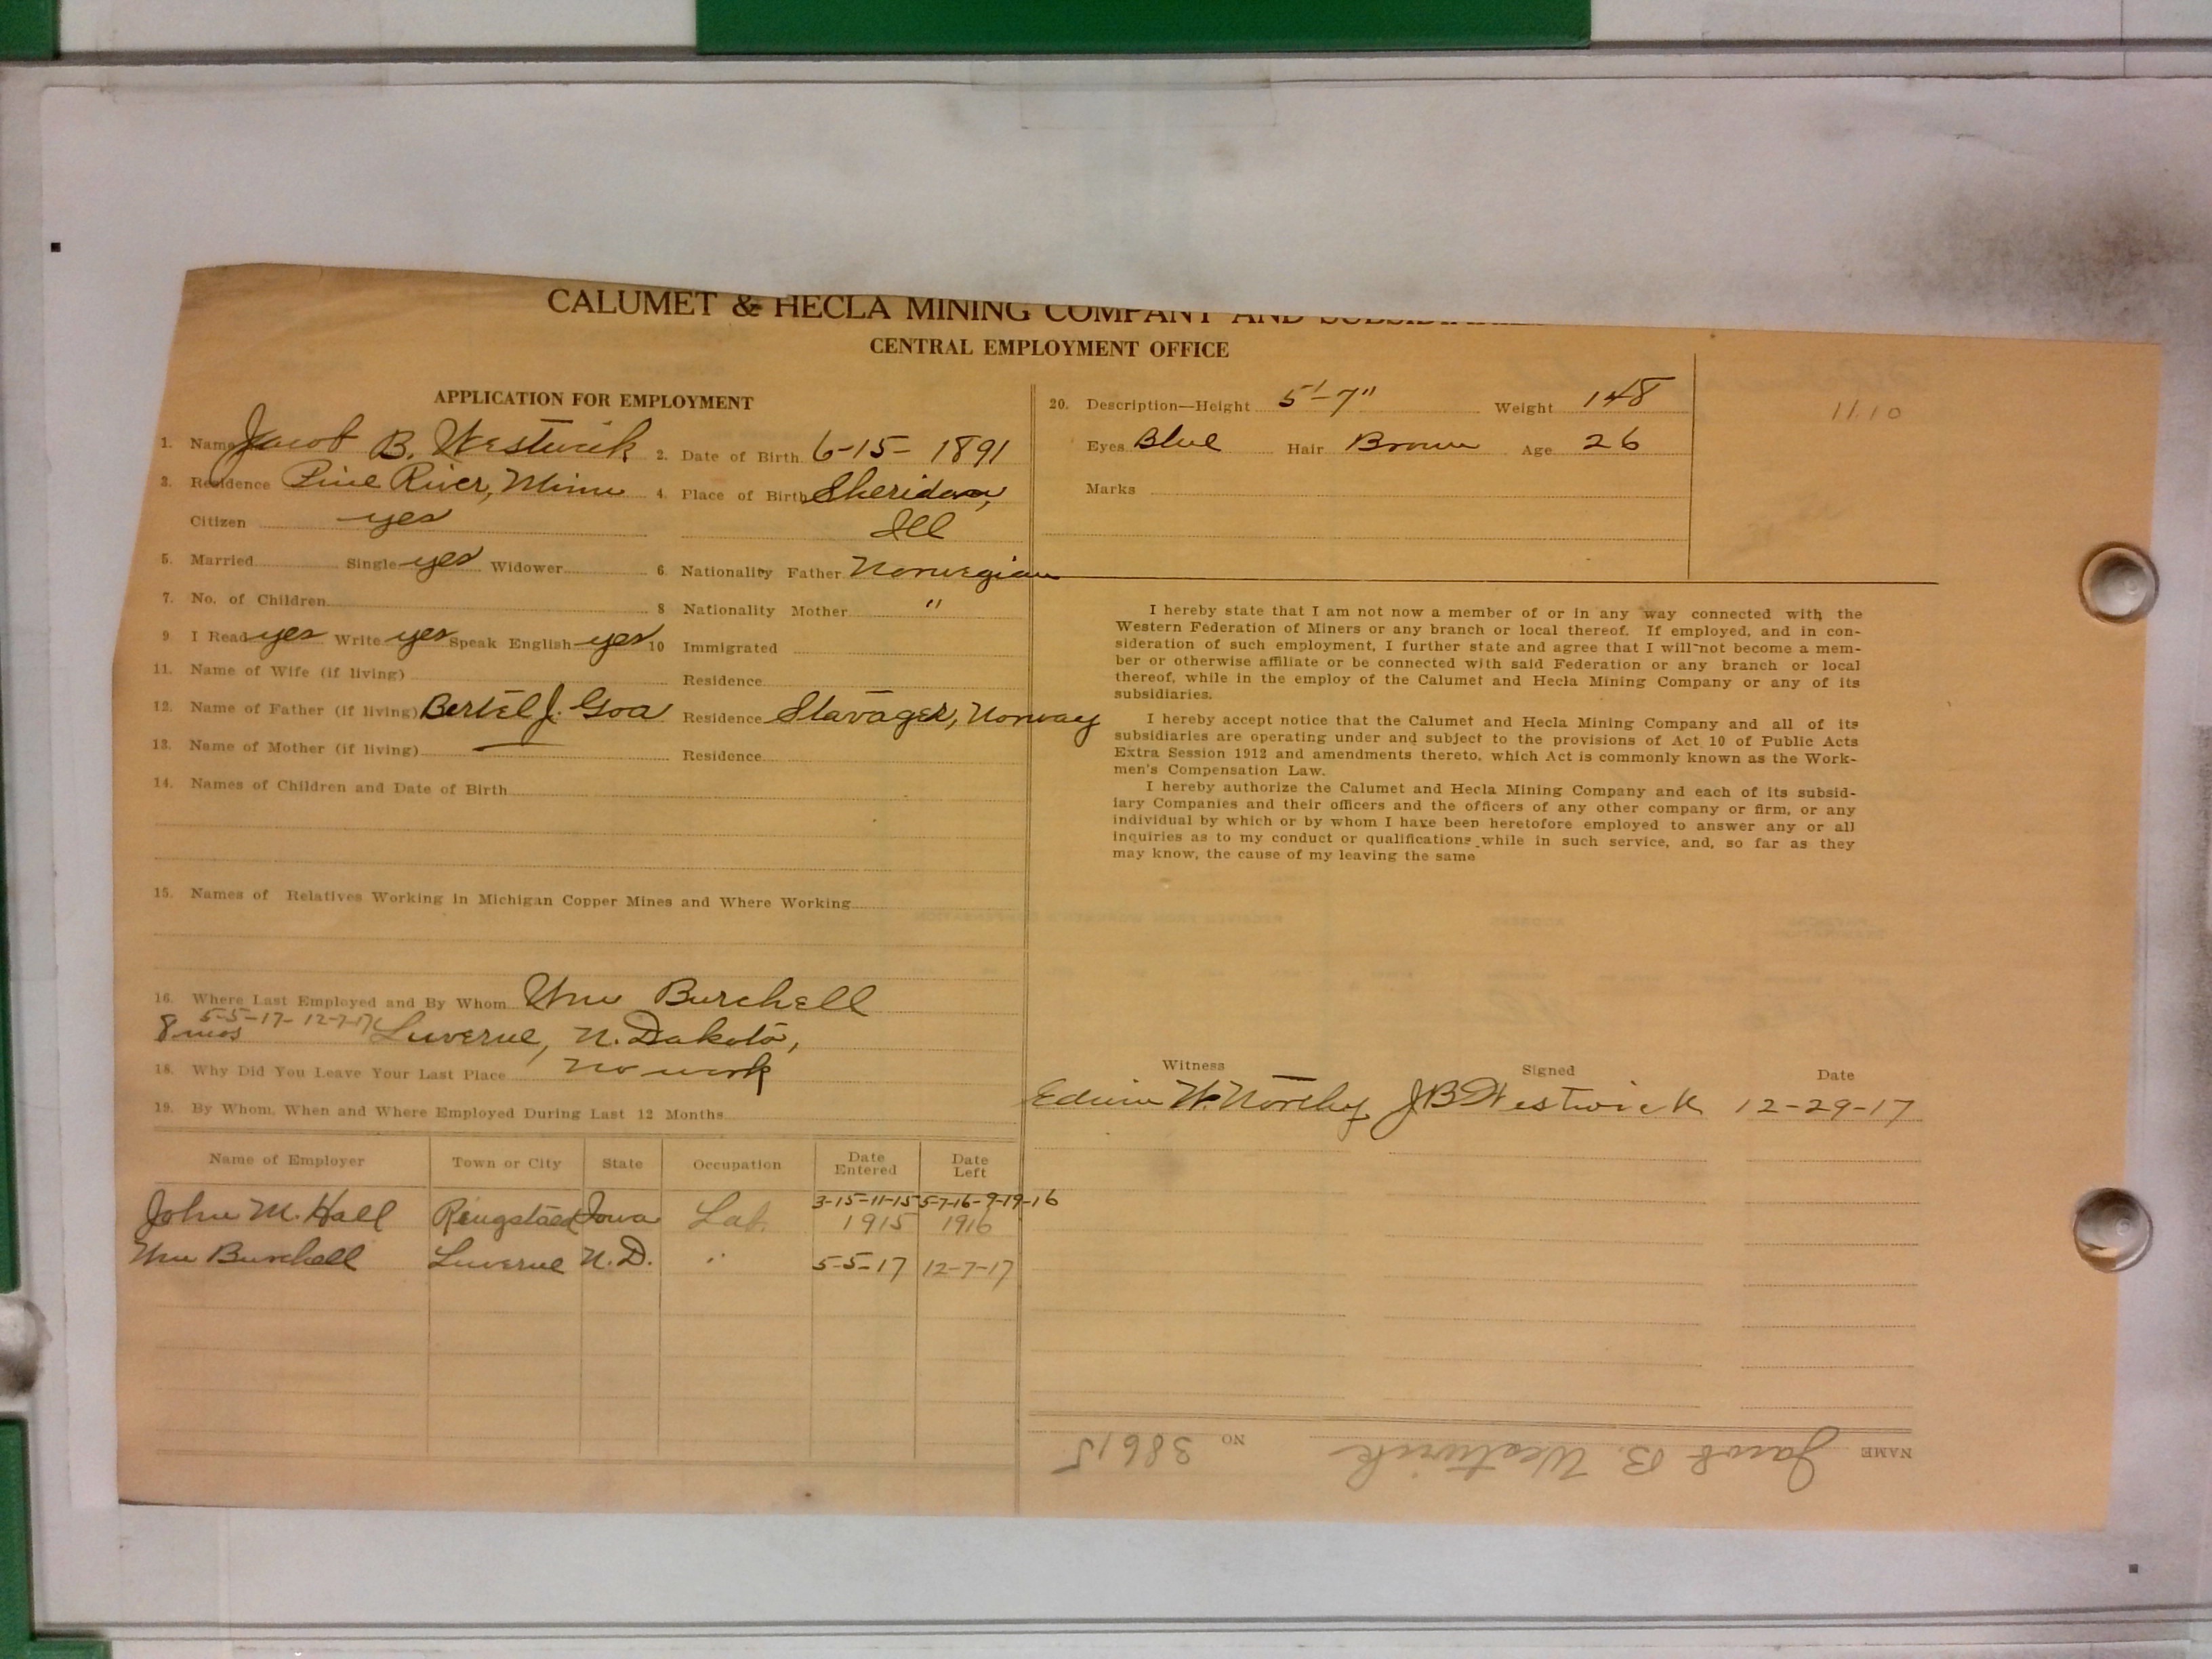 CALUMET & HECLA MINING COMPANY AND SUBSIDIARIES
CENTRAL EMPLOYMENT OFFICE
APPLICATION FOR EMPLOYMENT
1. Name Jacob B. Westwick 2. Date of Birth 6-15-1891
3. Residence Pine River, Minn 4. Place of Birth Sheridan,
Citizen yes Ill
5. Married Single yes Widower 6. Nationality Father Norwegian
7. No. of Children 8 Nationality Mother "
9 I Read yes Write yes Speak English yes 10 Immigrated
11. Name of Wife (if living) Residence
12. Name of Father (if living) Bertel J. Goa Residence Stavager, Norway
13. Name of Mother (if living) Residence
14. Names of Children and Date of Birth
15. Names of Relatives Working in Michigan Copper Mines and Where Working
16. Where Last Employed and By Whom Wm Burchell
5-5-17-12-7-17
8 mos Luverne, N. Dakota,
18. Why Did You Leave Your Last Place no work
19. By Whom, When and Where Employed During Last 12 Months
Name of Employer Town or City State Occupation Date Entered Date Left
3-15-11-15 5-7-16-9-19-16
John M. Hall Ringstaed Iowa Lab. 1915 1916
Wm Burchell Luverne N.D. " 5-5-17 12-7-17
20. Description—Height 5'-7" Weight 148
Eyes Blue Hair Brown Age 26
Marks
11.10
I hereby state that I am not now a member of or in any way connected with the
Western Federation of Miners or any branch or local thereof. If employed, and in con-
sideration of such employment, I further state and agree that I will not become a mem-
ber or otherwise affiliate or be connected with said Federation or any branch or local
thereof, while in the employ of the Calumet and Hecla Mining Company or any of its
subsidiaries.
I hereby accept notice that the Calumet and Hecla Mining Company and all of its
subsidiaries are operating under and subject to the provisions of Act 10 of Public Acts
Extra Session 1912 and amendments thereto, which Act is commonly known as the Work-
men's Compensation Law.
I hereby authorize the Calumet and Hecla Mining Company and each of its subsid-
iary Companies and their officers and the officers of any other company or firm, or any
individual by which or by whom I have been heretofore employed to answer any or all
inquiries as to my conduct or qualifications while in such service, and, so far as they
may know, the cause of my leaving the same
Witness Signed Date
Edwin W. J B Westwick 12-29-17
NAME Jacob B. Westwick NO 38615